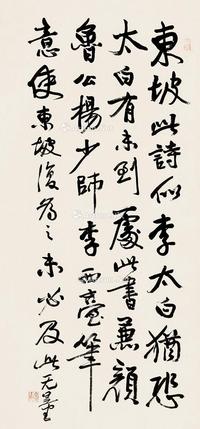 東坡此詩似李太白猶恐
太白有未到處此書兼顏
魯公楊少師李西臺筆
意使東坡復為之未必及此